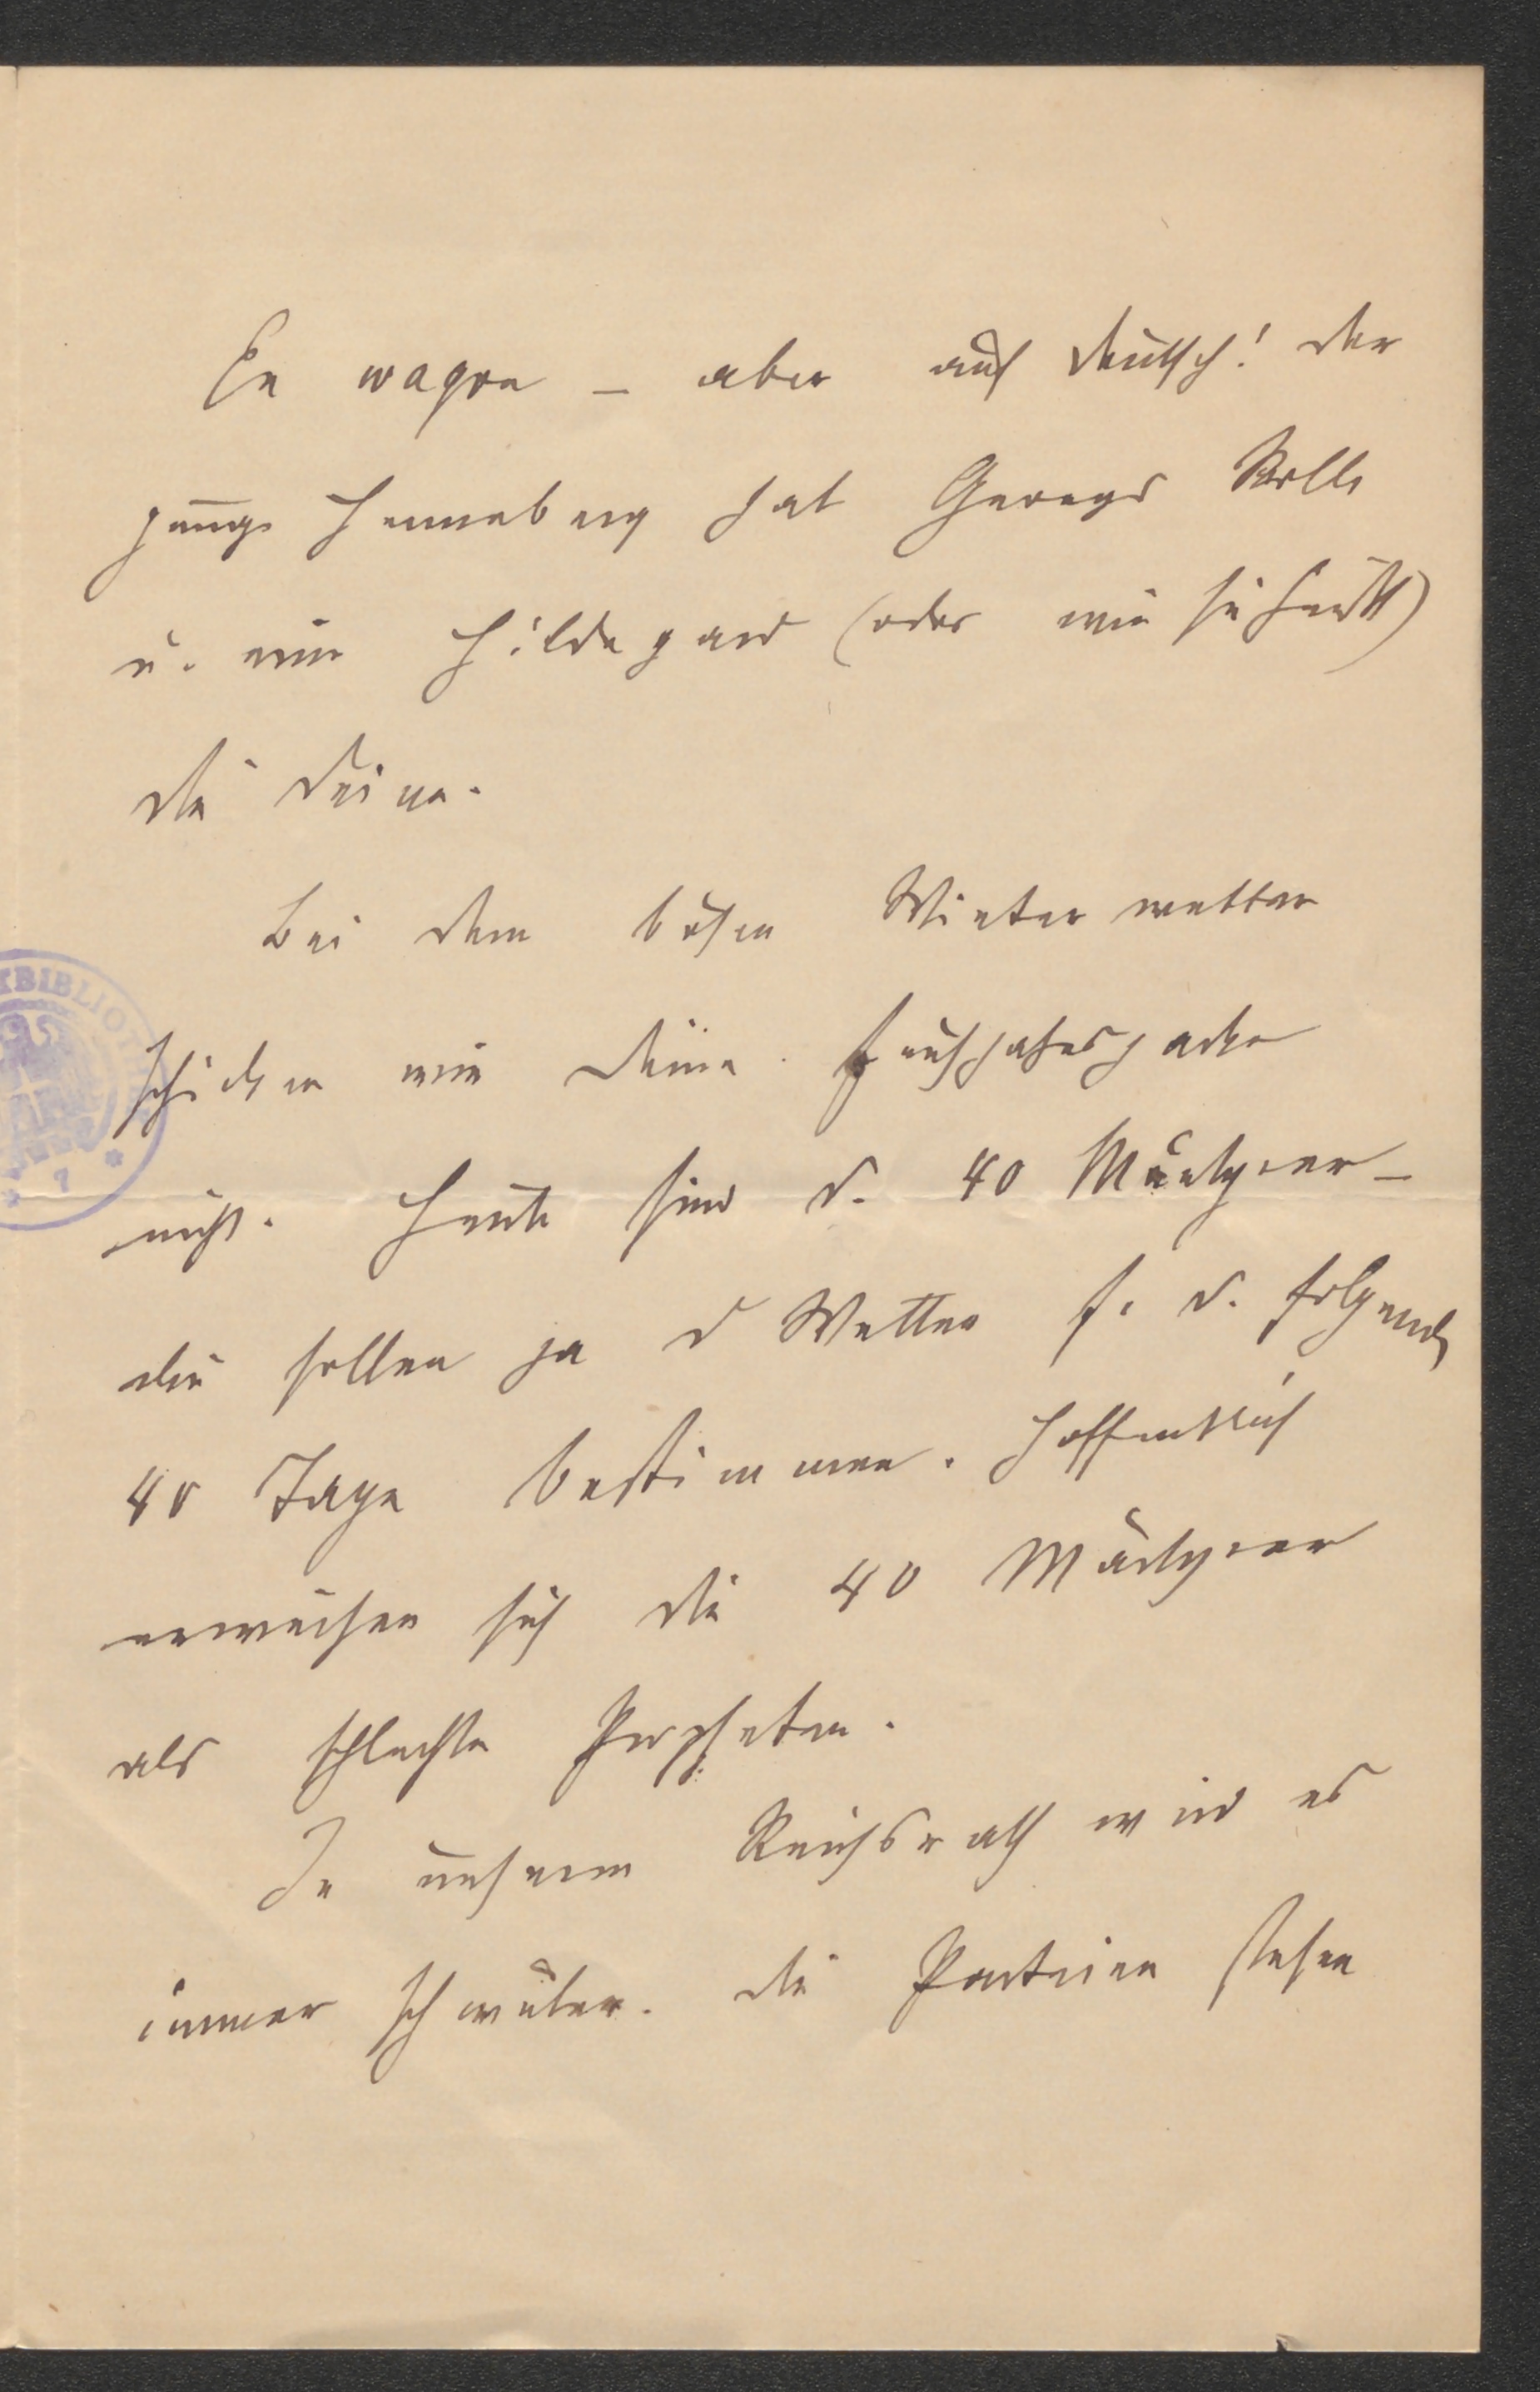 En wagon – aber auf deutsch! Der
junge Henneberg hat Georgs Rolle
u. eine Hildegard (oder wie sie heißt)
die Deine.
Bei dem bösen Winterwetter
schicken wir Deine Frühjahrsjacke
nicht. Heute sind d. 40 Märtyrer –
die sollen ja d Wetter f. d. folgend
40 Tage bestimmen. Hoffentlich
erweisen sich die 40 Märtyrer
als schlechte Propheten.
In unserm Reichsrath wird es
immer schwüler. Die Parteien stehen
BIBLIOTHE